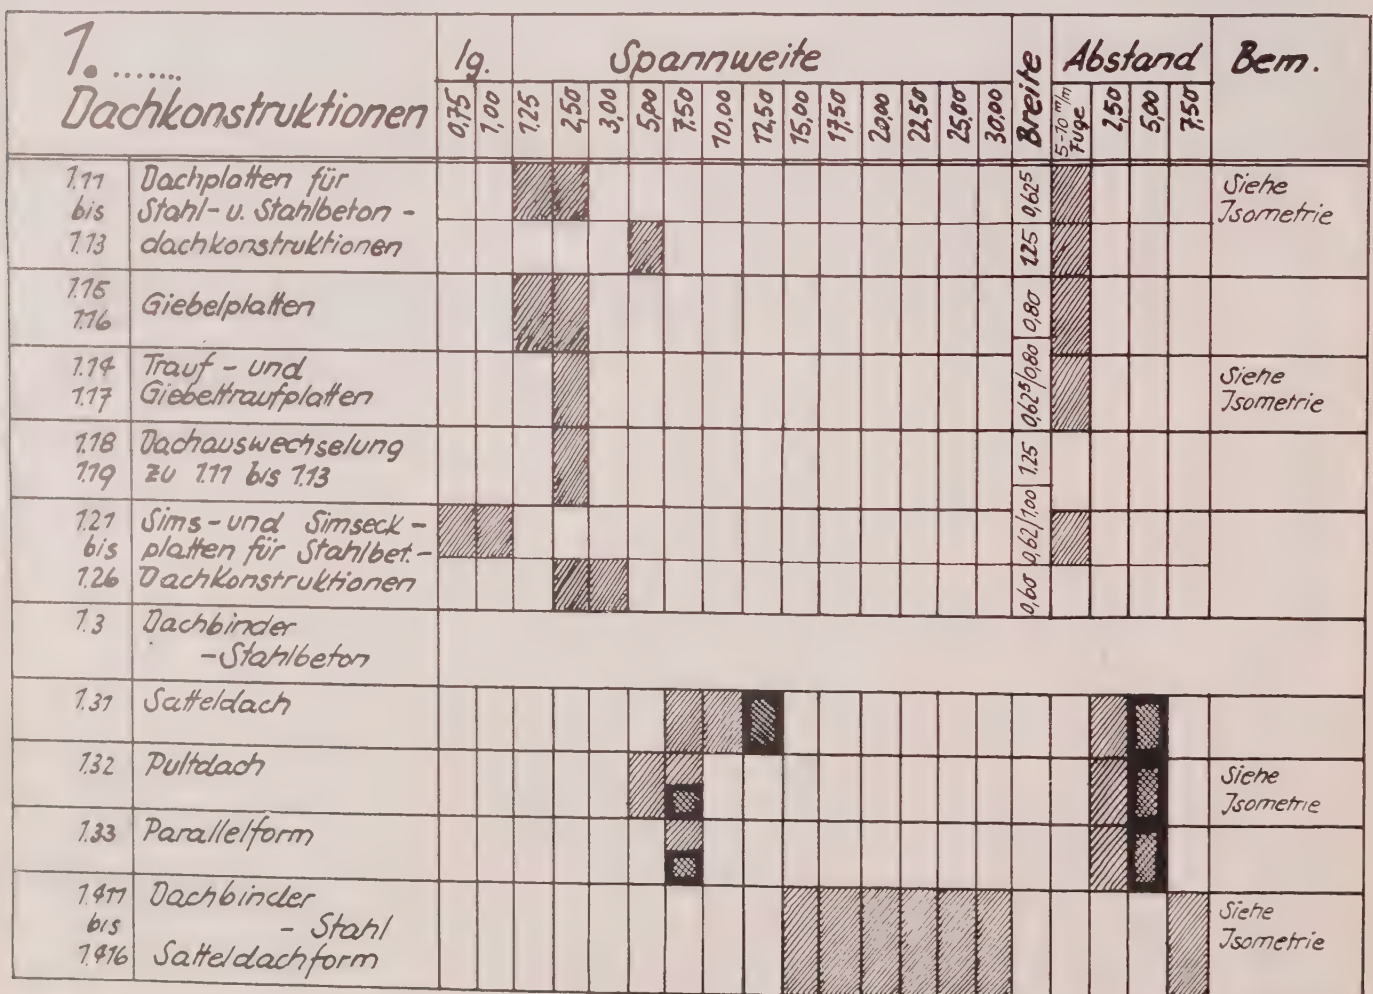 1. .......
Dachkonstruktionen
lg.
Spannweite
Breite
Abstand
Bem.
0,75
1,00
1.25
2,50
3,00
5,00
7.50
10.00
12,50
15,00
17,50
20,00
22,50
25,00
30,00
5-10 m/m
Fuge
2,50
5,00
7,50
1.11
bis
1.13
Dachplatten für
Stahl- u. Stahlbeton-
dachkonstruktionen
0,62⁵
1.25
Siehe
Isometrie
1.15
1.16
Giebelplatten
0,80
1.14
1.17
Trauf- und
Giebeltraufplatten
0,62⁵/0,80
Siehe
Isometrie
1.18
1.19
Dachauswechselung
zu 1.11 bis 1.13
1.25
1.21
bis
1.26
Sims- und Simseck-
platten für Stahlbet.-
Dachkonstruktionen
0,62/1.00
0,60
1.3
Dachbinder
-Stahlbeton
1.31
Satteldach
1.32
Pultdach
Siehe
Isometrie
1.33
Parallelform
1.411
bis
1.416
Dachbinder
- Stahl
Satteldachform
Siehe
Isometrie